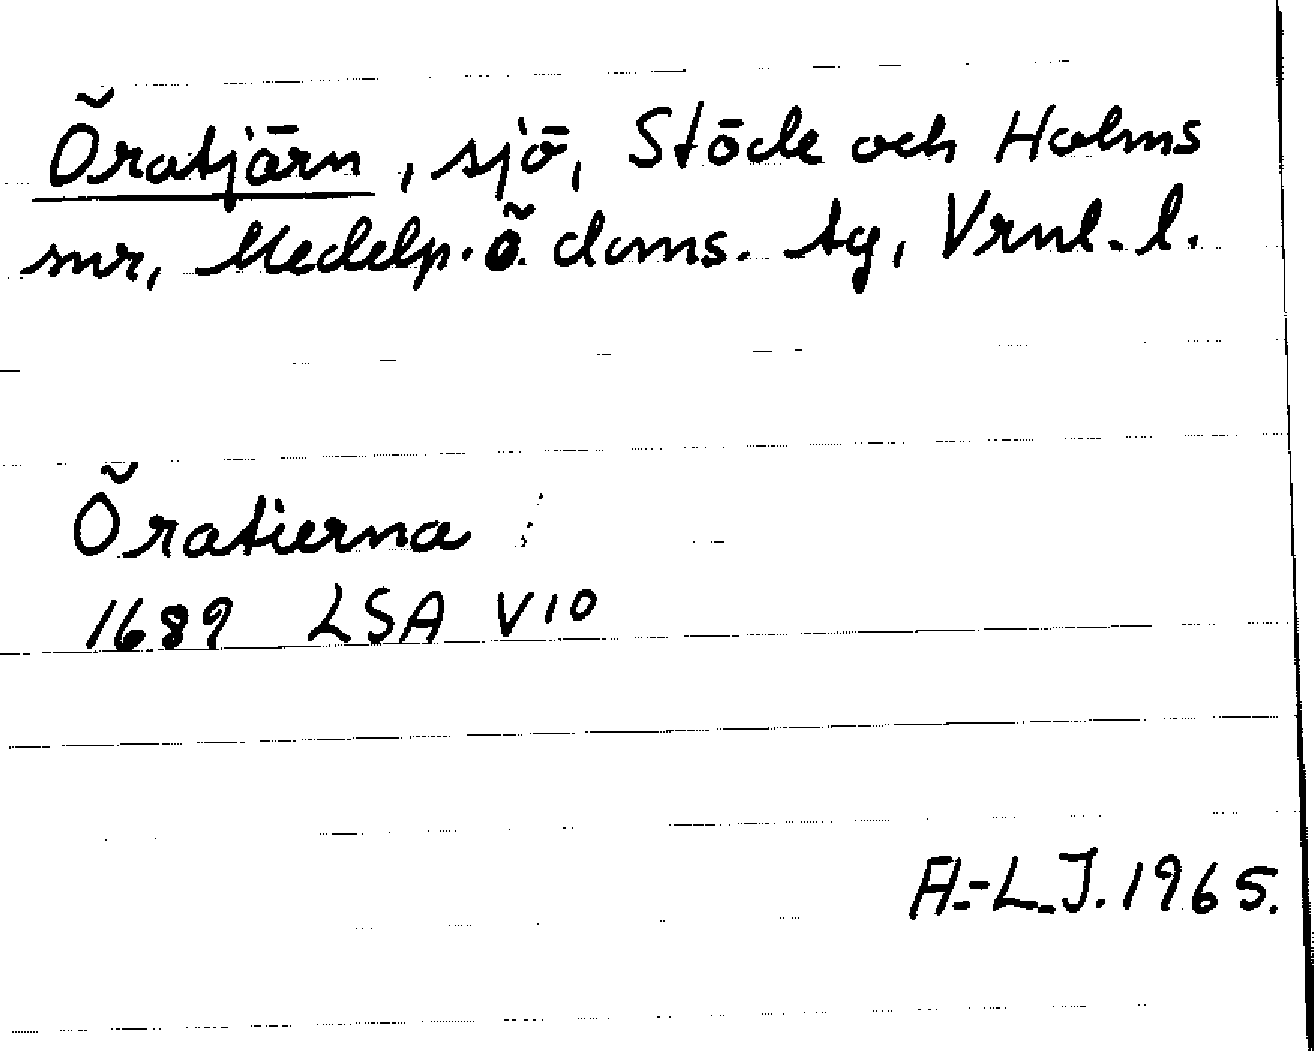 Öratjärn, sjö, Stöde och Holms
snr, Medelp. ö. doms. tg, Vrnl. l.
Öratierna
1689 LSA V10
A.-L.J. 1965.